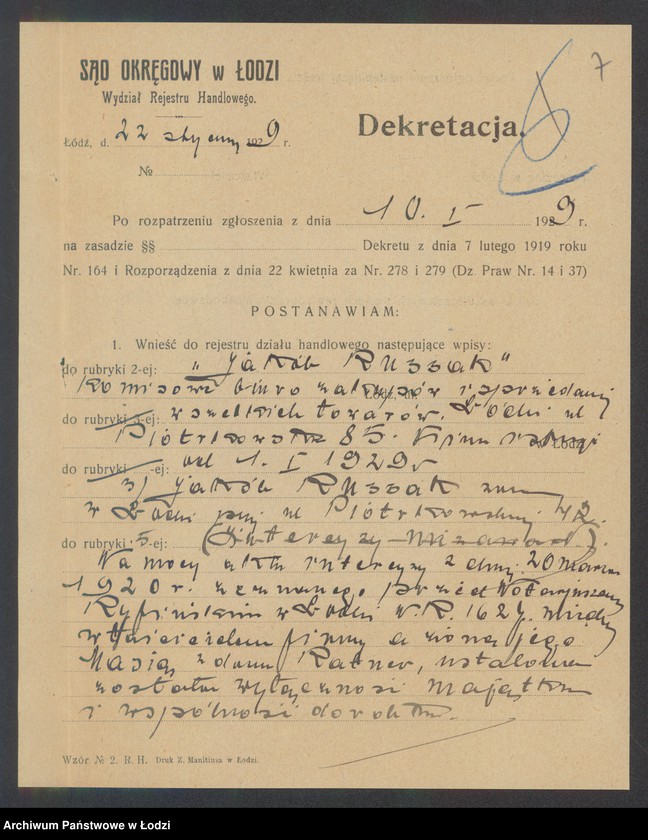 7
SĄD OKRĘGOWY w ŁODZI
Wydział Rejestru Handlowego.
Łódź, d. 22 stycznia 1929 r.
Dekretacja.
№
Po rozpatrzeniu zgłoszenia z dnia 10. I 1929 r.
na zasadzie §§ Dekretu z dnia 7 lutego 1919 roku
Nr. 164 i Rozporządzenia z dnia 22 kwietnia za Nr. 278 i 279 (Dz. Praw Nr. 14 i 37)
POSTANAWIAM:
1. Wnieść do rejestru działu handlowego następujące wpisy:
do rubryki 2-ej: „Jakób Russak"
Komisowe biuro zakupów i sprzedaży
do rubryki 3-ej: wszelkich towarów. Łodzi ul
Piotrkowska 85. Firma istnieje
do rubryki -ej: od 1. I 1929 r
3) Jakób Russak zam
w Łodzi przy ul Piotrkowskiej 42.
do rubryki 5-ej: (Intercyzy
Na mocy aktu intercyzy z dnia 20 marca
1920 r. zeznanego przed Notarjuszem
w Łodzi N.R. 1627 między
właścicielem firmy a żoną jego
Masią z domu Ratner, ustalona
została wyłączność majątku
i wspólność dorobku.
Wzór № 2. R. H. Druk Z. Manitiusa w Łodzi.
Archiwum Państwowe w Łodzi